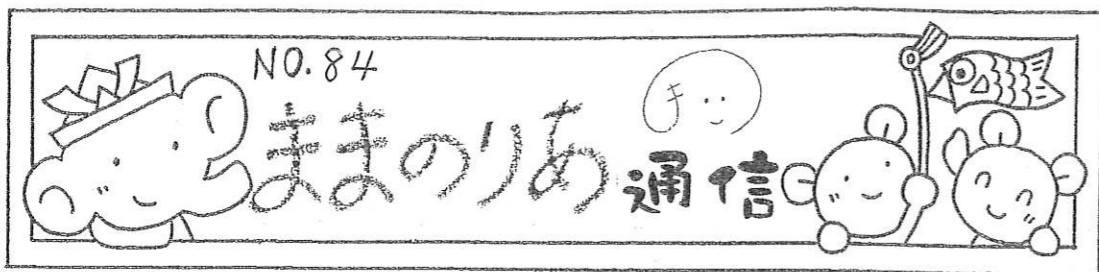 NO.84
ままのりあ通信
ま